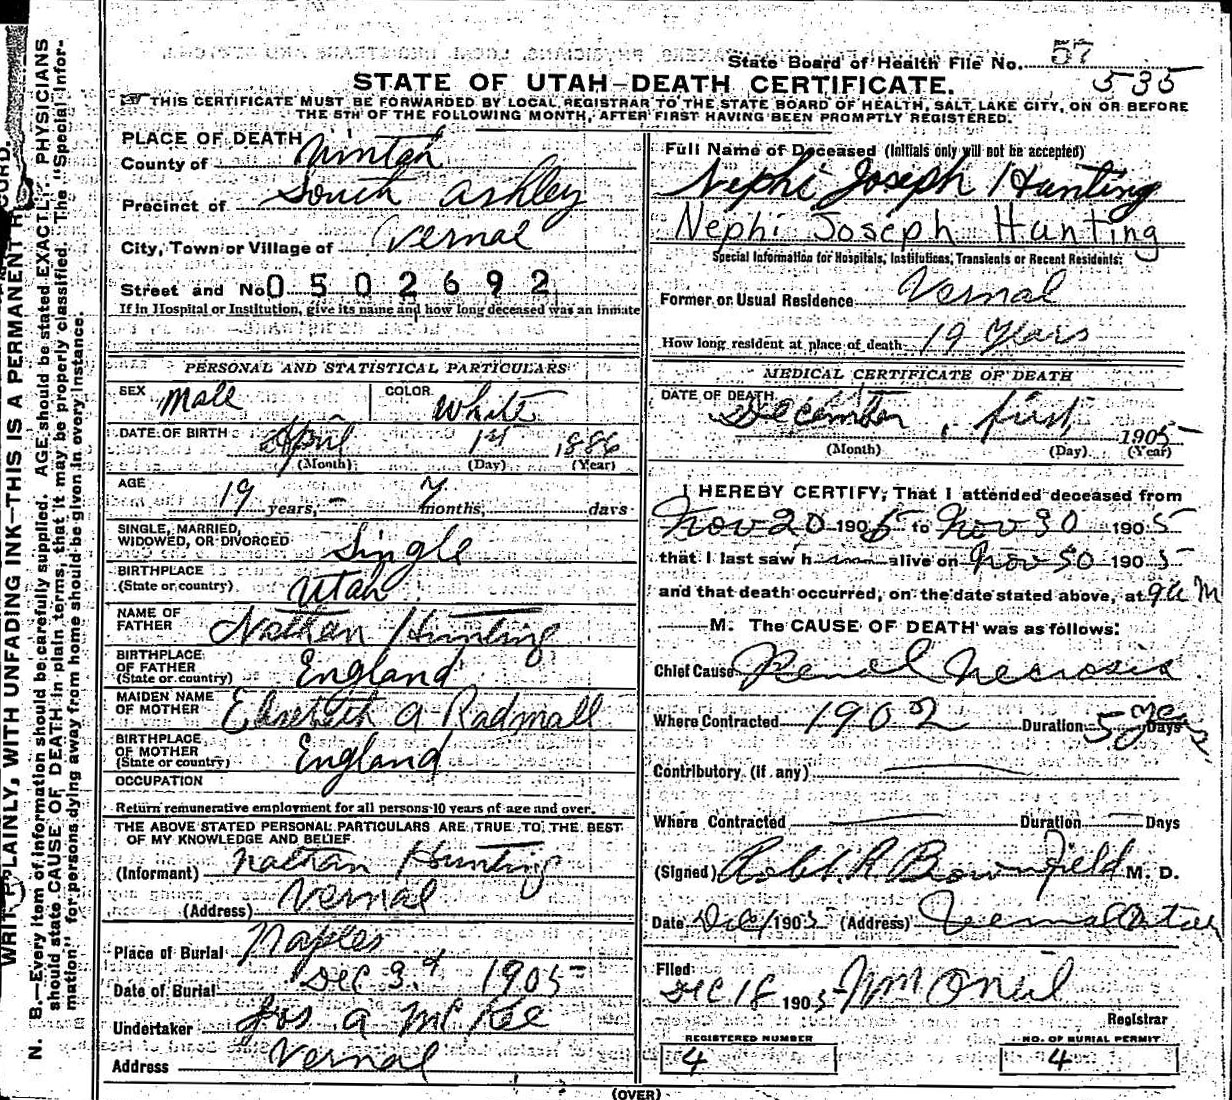 State Board of Health File No. 57
535
STATE OF UTAH—DEATH CERTIFICATE.
THIS CERTIFICATE MUST BE FORWARDED BY LOCAL REGISTRAR TO THE STATE BOARD OF HEALTH, SALT LAKE CITY, ON OR BEFORE
THE 5TH OF THE FOLLOWING MONTH, AFTER FIRST HAVING BEEN PROMPTLY REGISTERED.
PLACE OF DEATH
County of Uintah
Precinct of South Ashley
City, Town or Village of Vernal
Street and No. 0502692
If in Hospital or Institution, give its name and how long deceased was an inmate
PERSONAL AND STATISTICAL PARTICULARS
SEX Male COLOR White
DATE OF BIRTH April 1st 1886
(Month) (Day) (Year)
AGE
19 years, - 7 months, days
SINGLE, MARRIED,
WIDOWED, OR DIVORCED Single
BIRTHPLACE
(State or country) Utah
NAME OF
FATHER Nathan Hunting
BIRTHPLACE
OF FATHER
(State or country) England
MAIDEN NAME
OF MOTHER Elizabeth A Radmall
BIRTHPLACE
OF MOTHER
(State or country) England
OCCUPATION
Return remunerative employment for all persons 10 years of age and over.
THE ABOVE STATED PERSONAL PARTICULARS ARE TRUE TO THE BEST
OF MY KNOWLEDGE AND BELIEF
(Informant) Nathan Hunting
(Address) Vernal
Place of Burial Naples
Date of Burial Dec 3d 1905
Undertaker Jos. A McKee
Address Vernal
Full Name of Deceased (Initials only will not be accepted)
Nephi Joseph Hunting
Nephi Joseph Hunting
Special Information for Hospitals, Institutions, Transients or Recent Residents:
Former or Usual Residence Vernal
How long resident at place of death 19 Years
MEDICAL CERTIFICATE OF DEATH
DATE OF DEATH
December, first, 1905
(Month) (Day) (Year)
I HEREBY CERTIFY, That I attended deceased from
Nov 20 1905 to Nov 30 1905
that I last saw him alive on Nov 30 1905
and that death occurred, on the date stated above, at 9 a M
M. The CAUSE OF DEATH was as follows:
Chief Cause Renal Necrosis
Where Contracted 1902 Duration 5 yrs Days
Contributory (if any)
Where Contracted Duration Days
(Signed) Robt. R Brownfield M. D.
Date Dec 1 1905 (Address) Vernal Utah
Filed
Dec 18 1905 Wm O'Neil
Registrar
REGISTERED NUMBER
4
NO. OF BURIAL PERMIT
4
(OVER)
WRITE PLAINLY, WITH UNFADING INK—THIS IS A PERMANENT RECORD.
N. B.—Every item of information should be carefully supplied. AGE should be stated EXACTLY. PHYSICIANS
should state CAUSE OF DEATH in plain terms, that it may be properly classified. The "Special Infor-
mation" for persons dying away from home should be given in every instance.